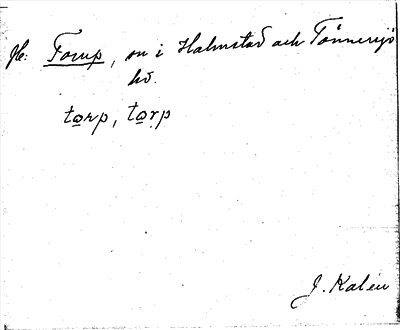 Hl: Torup, sn i Halmstad och Tönnersjö
hd.
to̲rp, to̲ṛp
J. Kalén